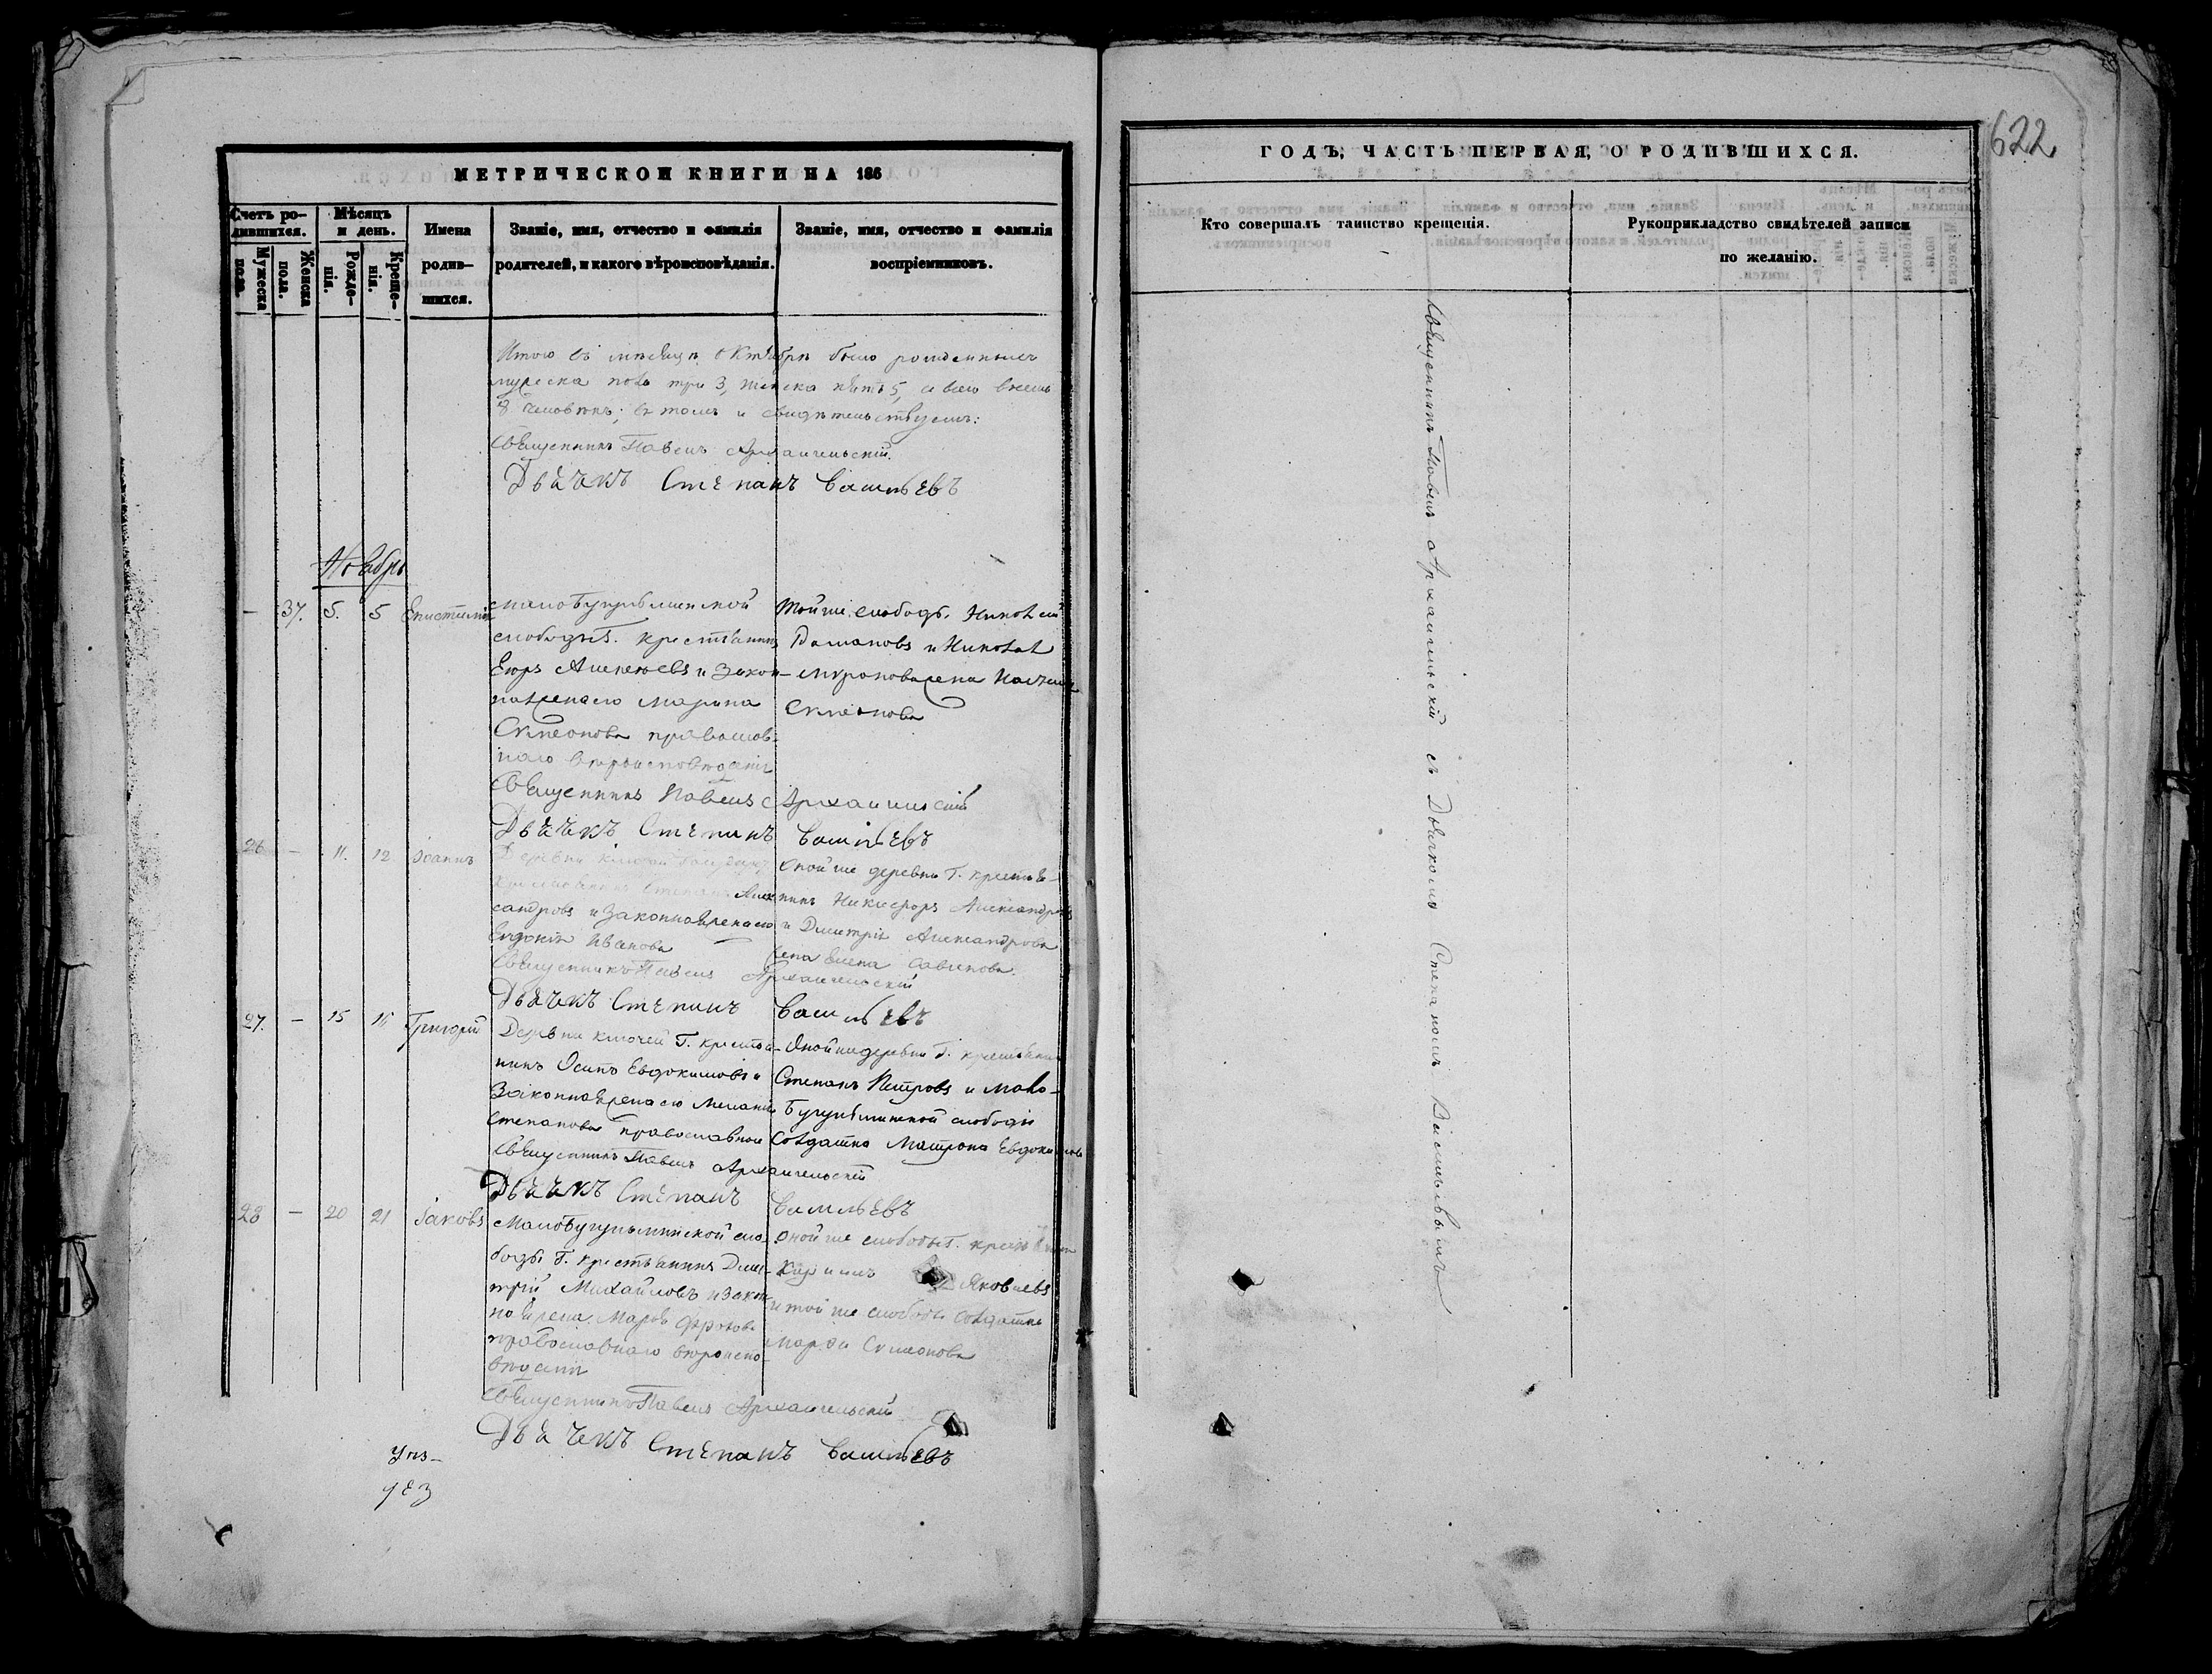 МЕТРИЧЕСКОЙ КНИГИ НА 186
Счетъ ро-
дившихся.
Мужеска
пола.
Женска
пола.
Мѣсяцъ
и день.
Рожде-
нія.
Креще-
нія.
Имена
родив-
шихся.
Званіе, имя, отчество и фамилія
родителей, и какого вѣроисповѣданія.
Званіе, имя, отчество и фамилія
воспріемниковъ.
Итого въ мѣсяцѣ Октябрѣ было рожденныхъ
мужеска пола три 3, женска пять 5, а всего
8 человѣкъ; въ томъ и свидѣтельствуемъ:
Священникъ Павелъ Архангельскій.
Дьячекъ Степанъ Васильевъ
Ноябрь
— 37. 5. 5 Епистимія
Малобугульминской
слободы Г. крестьянинъ
Егоръ Алексѣевъ и закон-
ная жена его Марина
Симеонова православ-
наго вѣроисповѣданія
Той же слободы Николай
Романовъ и Николая
Симеонова
Священникъ Павелъ Архангельскій
Дьячекъ Степанъ Васильевъ
26 — 11. 12 Іоаннъ
Деревни Ключей
крестьянинъ Степанъ Алек-
сандровъ и законная жена его
Евдокія Иванова
Оной же деревни Г. крестья-
нинъ Никифоръ Александровъ
и Димитрія Александрова
жена Елена Савинова.
Священникъ Павелъ Архангельскій
Дьячекъ Степанъ Васильевъ
27. — 15 16 Григорій
Деревни Ключей Г. крестья-
нинъ Осипъ Евдокимовъ и
Законная жена его Меланія
Степанова православнаго
Оной же деревни Г. крестьянинъ
Степанъ Петровъ и Мало-
Бугульминской слободы
Солдатка Матрона Евдокимова
Священникъ Павелъ Архангельскій
Дьячекъ Степанъ Васильевъ
28 — 20 21 Іаковъ
Малобугульминской сло-
боды Г. крестьянинъ Дми-
трій Михайловъ и закон-
ная жена Марья Фролова
православнаго вѣроиспо-
вѣданія
оной же слободы Г. крестьянинъ
Яковлевъ
и той же слободы Солдатка
Марѳа Симеонова
Священникъ Павелъ Архангельскій
Дьячекъ Степанъ Васильевъ
622
ГОДЪ, ЧАСТЬ ПЕРВАЯ, О РОДИВШИХСЯ.
Кто совершалъ таинство крещенія.
Рукоприкладство свидѣтелей записи
по желанію.
Священникъ Павелъ Архангельскій съ Дьячкомъ Степаномъ Васильевымъ